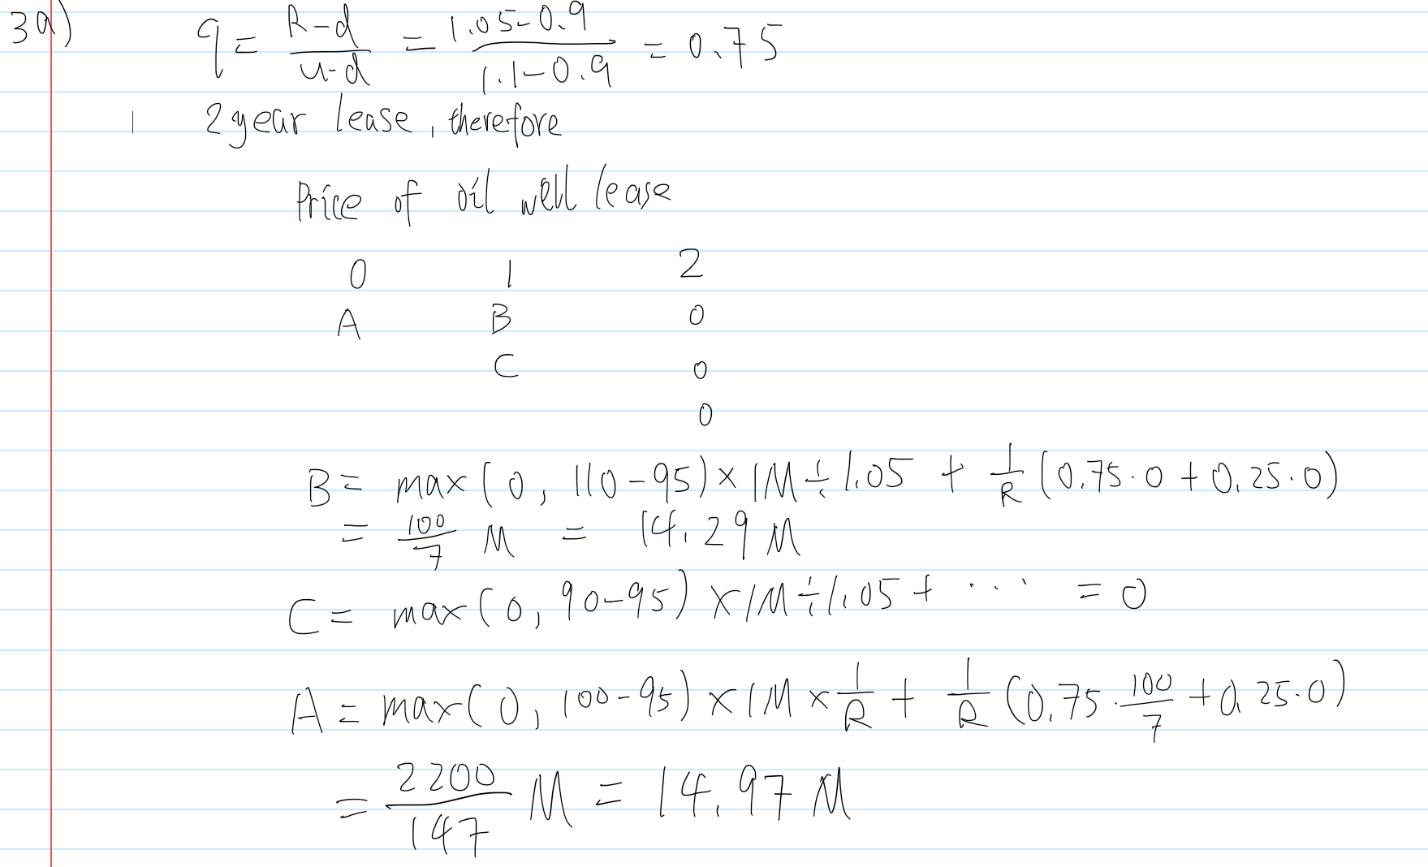 3a) q = (R-d)/(u-d) = (1.05-0.9)/(1.1-0.9) = 0.75
2 year lease, therefore
Price of oil well lease
0 1 2
A B 0
C 0
0
B = max(0, 110-95) × 1M ÷ 1.05 + 1/R (0.75·0 + 0.25·0)
= 100/7 M = 14.29 M
C = max(0, 90-95) × 1M ÷ 1.05 + ... = 0
A = max(0, 100-95) × 1M × 1/R + 1/R (0.75·100/7 + 0.25·0)
= 2200/147 M = 14.97 M